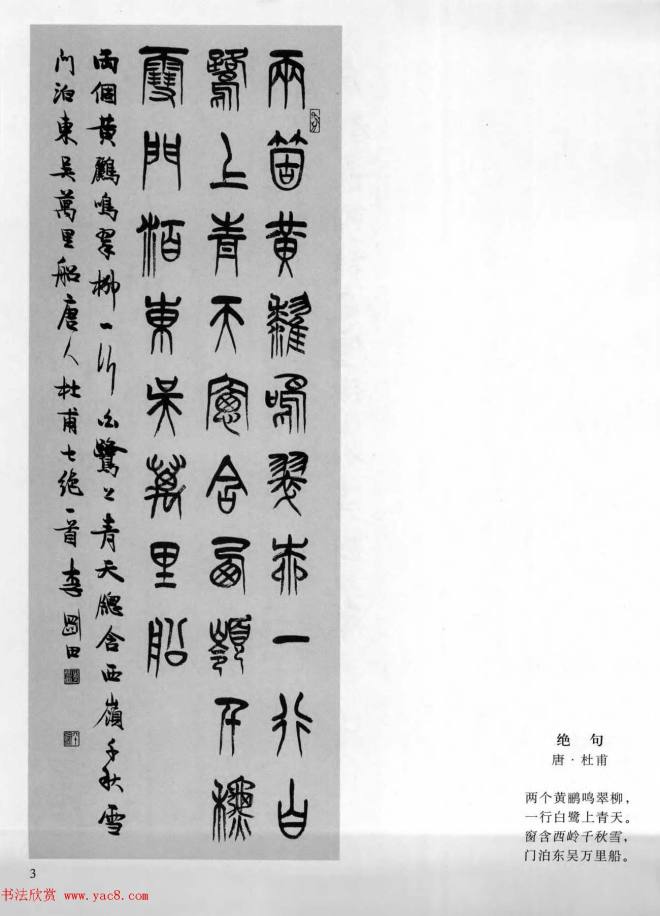 兩箇黄鸝鳴翠柳一行白
鷺上青天窗含西嶺千秋
雪門泊東吳萬里船
兩個黄鸝鳴翠柳一行白鷺上青天牕含西嶺千秋雪
门泊東吳萬里船唐人杜甫七絶一首李剛田
绝 句
唐·杜甫
两个黄鹂鸣翠柳，
一行白鹭上青天。
窗含西岭千秋雪，
门泊东吴万里船。
3
书法欣赏 www.yac8.com